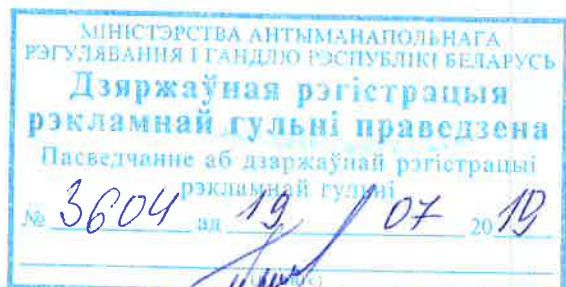 МІНІСТЭРСТВА АНТЫМАНАПОЛЬНАГА
РЭГУЛЯВАННЯ І ГАНДЛЮ РЭСПУБЛІКІ БЕЛАРУСЬ
Дзяржаўная рэгістрацыя
рэкламнай гульні праведзена
Пасведчанне аб дзаржаўнай рэгістрацыі
рэкламнай гульні
№ 3604 ад 19 07 2019